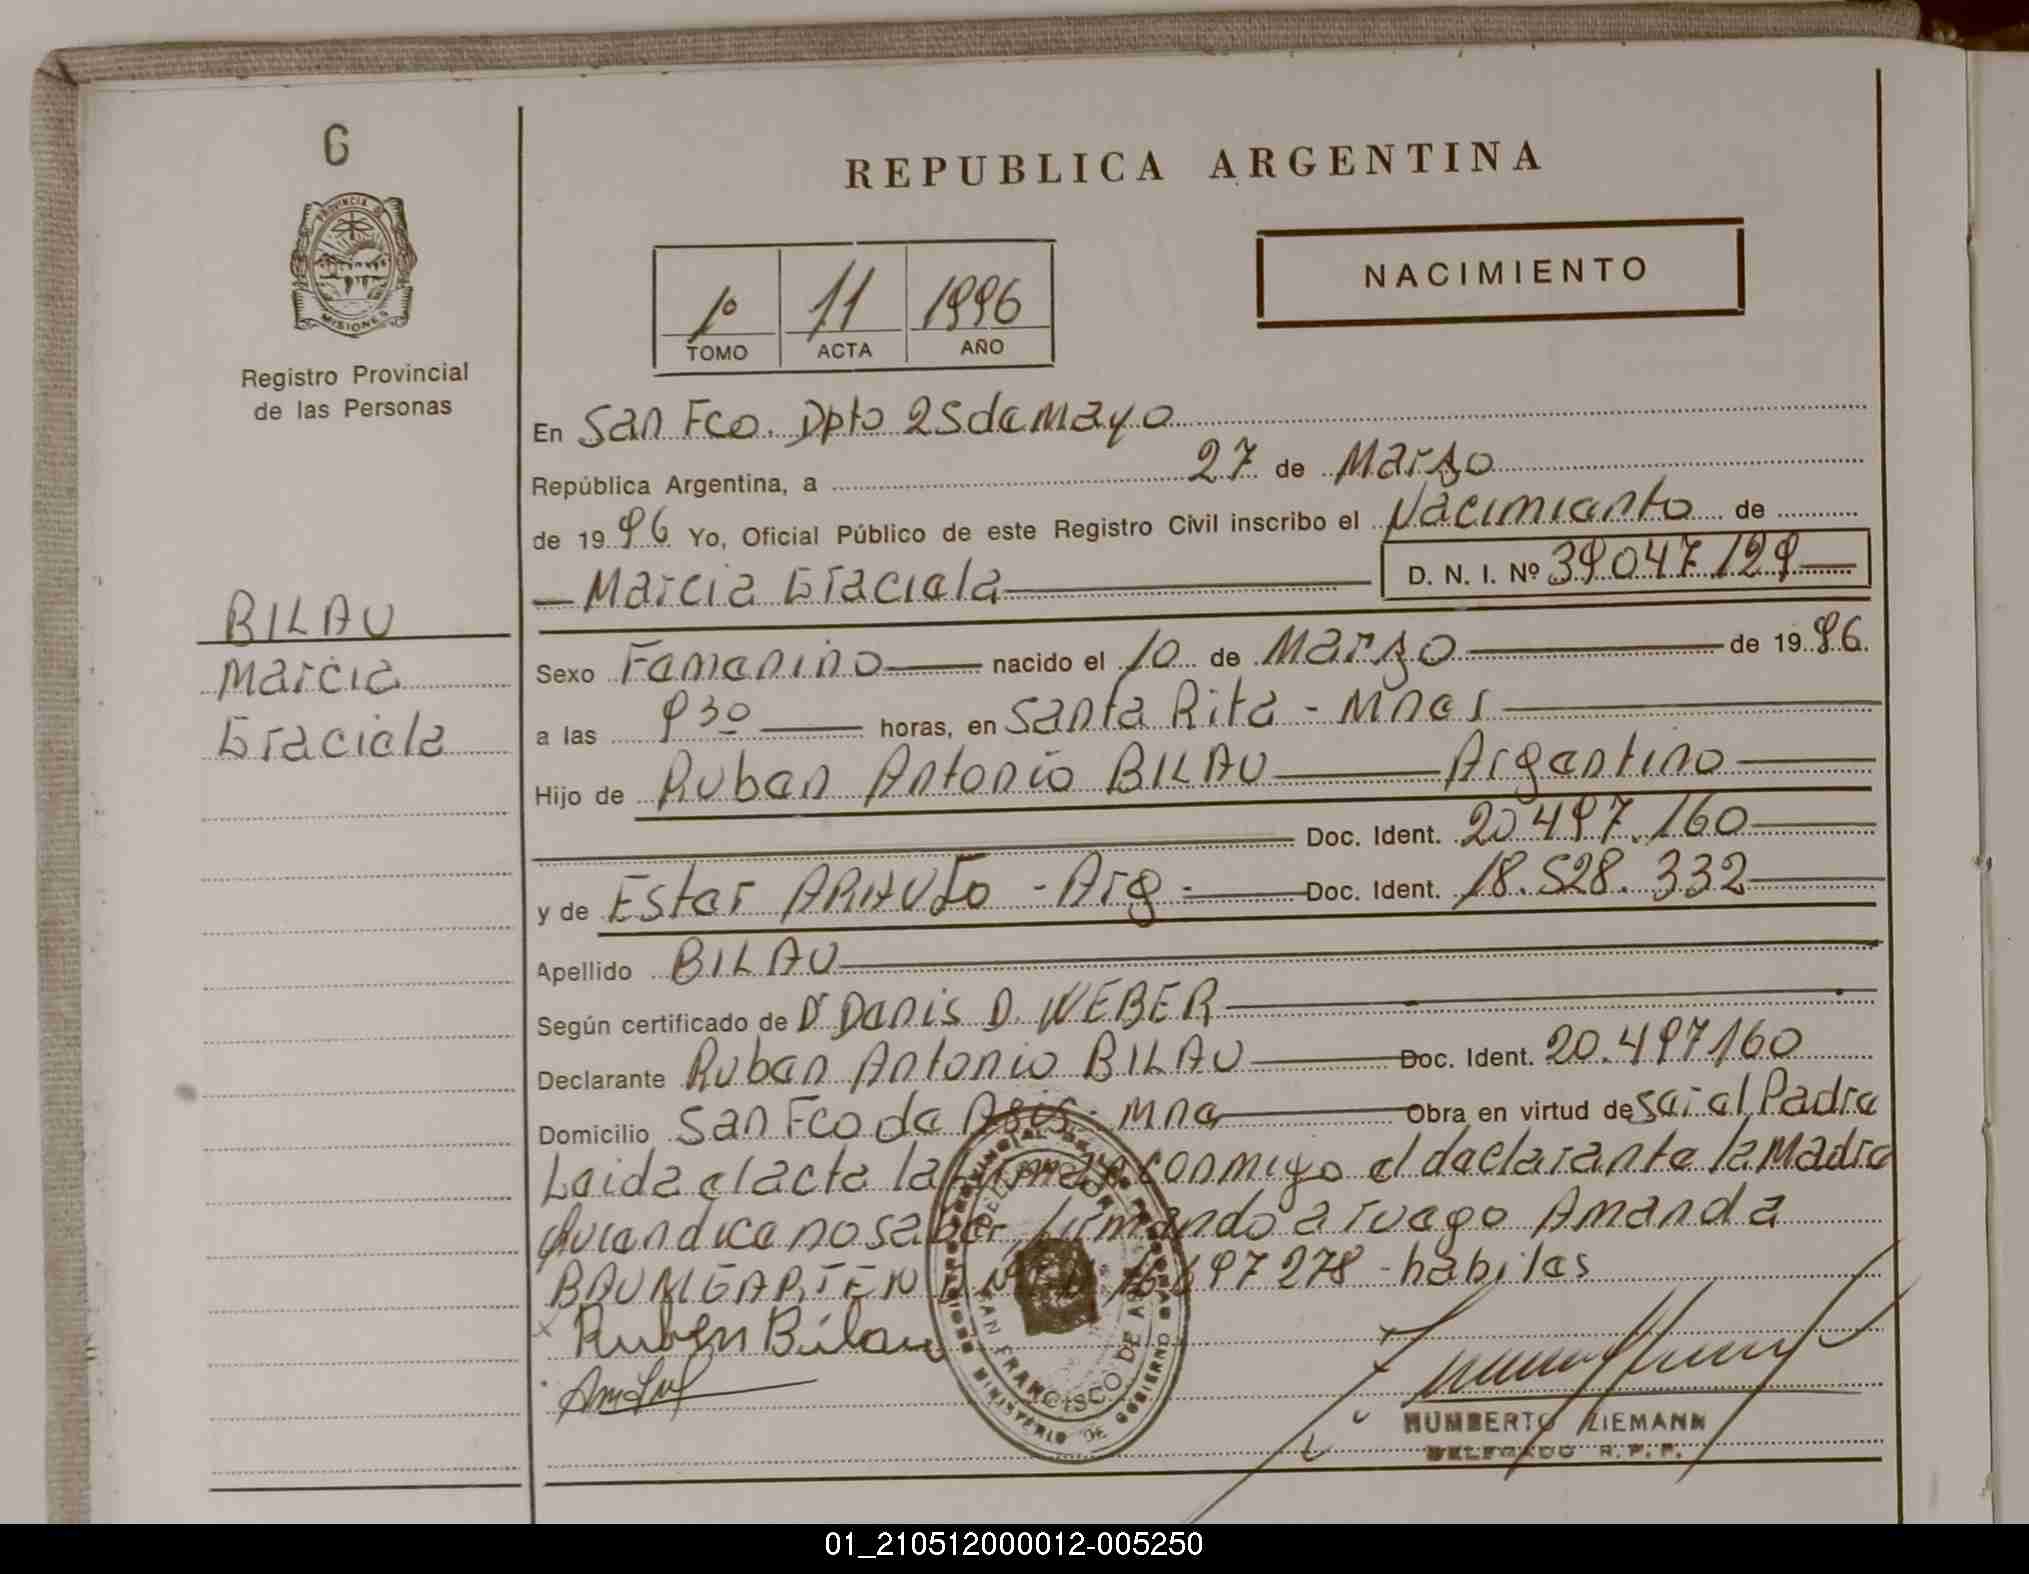 6
PROVINCIA DE
MISIONES
Registro Provincial
de las Personas
BILAU
Marcia
Graciela
REPUBLICA ARGENTINA
1º 11 1996
TOMO ACTA AÑO
NACIMIENTO
En San Fco. Dpto 25 de Mayo
República Argentina, a 27 de Marzo
de 1996 Yo, Oficial Público de este Registro Civil inscribo el Nacimiento de
Marcia Graciela D. N. I. Nº 39047129
Sexo Femenino nacido el 10 de Marzo de 1996.
a las 930 horas, en Santa Rita - Mnes
Hijo de Ruben Antonio BILAU Argentino
Doc. Ident. 20497.160
y de Ester ARAUJO - Arg - Doc. Ident. 18.528.332
Apellido BILAU
Según certificado de Dr Denis D. WEBER
Declarante Ruben Antonio BILAU Doc. Ident. 20.497160
Domicilio San Fco de Asis - Mne Obra en virtud de ser el Padre
Leida el acta la firman conmigo el declarante la Madre
quien dice no saber firmando a ruego Amanda
BAUMGARTEN 16697278 - habiles
Ruben Bilau
HUMBERTO ZIEMANN
DELEGADO R.P.P.
REGISTRO PROVINCIAL DE LAS PERSONAS
SAN FRANCISCO DE ASIS
MINISTERIO DE GOBIERNO
01_210512000012-005250